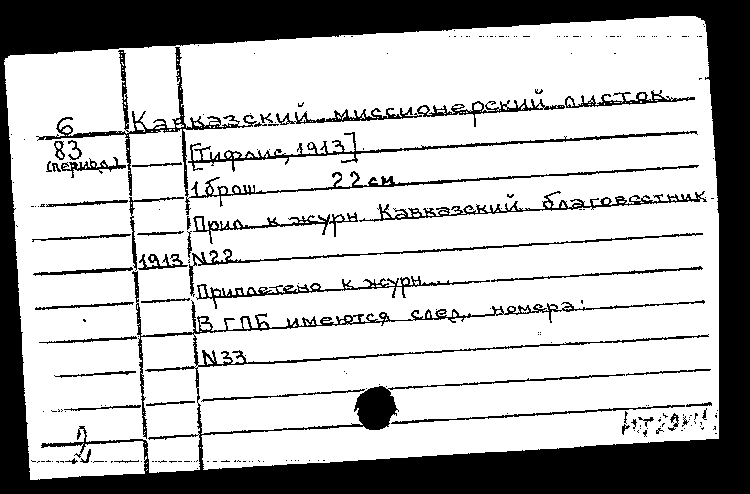 6 Кавказский миссионерский листок.
83 [Тифлис, 1913]
(период.)
1 брош. 22 см
Прил. к журн. Кавказский благовестник
1913 N22.
Приплетено к журн...
В ГПБ имеются след. номера:
N33
2